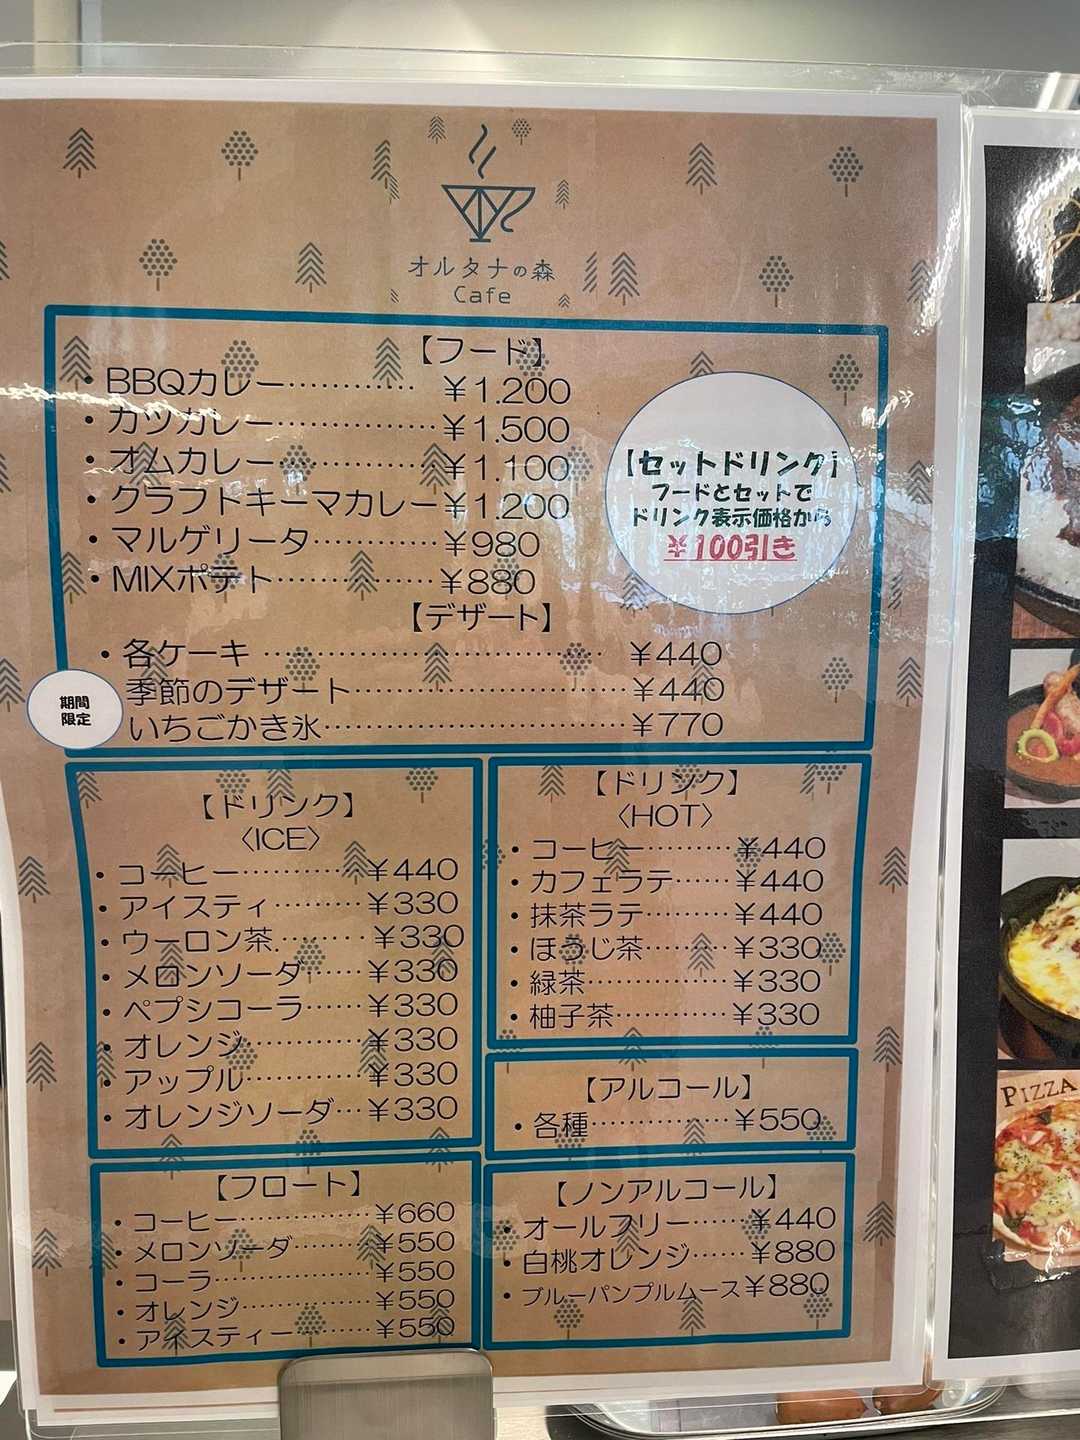 オルタナの森
Cafe
【フード】
・BBQカレー…………… ￥1.200
・カツカレー……………￥1.500
・オムカレー……………￥1.100
・クラフトキーマカレー￥1.200
・マルゲリータ…………￥980
・MIXポテト……………￥880
【セットドリンク】
フードとセットで
ドリンク表示価格から
￥100引き
【デザート】
・各ケーキ …………………………… ￥440
季節のデザート………………………￥440
期間
限定
いちごかき氷…………………………￥770
【ドリンク】
〈ICE〉
・コーヒー…………￥440
・アイスティ………￥330
・ウーロン茶.………￥330
・メロンソーダ……￥330
・ペプシコーラ……￥330
・オレンジ…………￥330
・アップル…………￥330
・オレンジソーダ…￥330
【ドリンク】
〈HOT〉
・コーヒー………￥440
・カフェラテ……￥440
・抹茶ラテ………￥440
・ほうじ茶………￥330
・緑茶……………￥330
・柚子茶…………￥330
【アルコール】
・各種……………￥550
【フロート】
・コーヒー……………￥660
・メロンソーダ………￥550
・コーラ………………￥550
・オレンジ……………￥550
・アイスティー………￥550
【ノンアルコール】
・オールフリー……￥440
・白桃オレンジ……￥880
・ブルーパンプルムース￥880
PIZZA